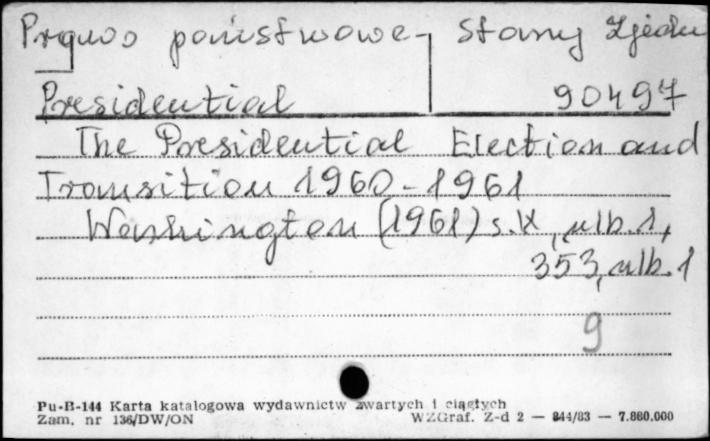 Prawo państwowe - Stany Zjedn
Presidential 90497
The Presidential Election and
Transition 1960-1961
Washington (1961) s. X, nlb. 1,
353, nlb. 1
9
Pu-B-144 Karta katalogowa wydawnictw zwartych i ciągłych
Zam. nr 136/DW/ON WZGraf. Z-d 2 — 844/83 — 7.860.000